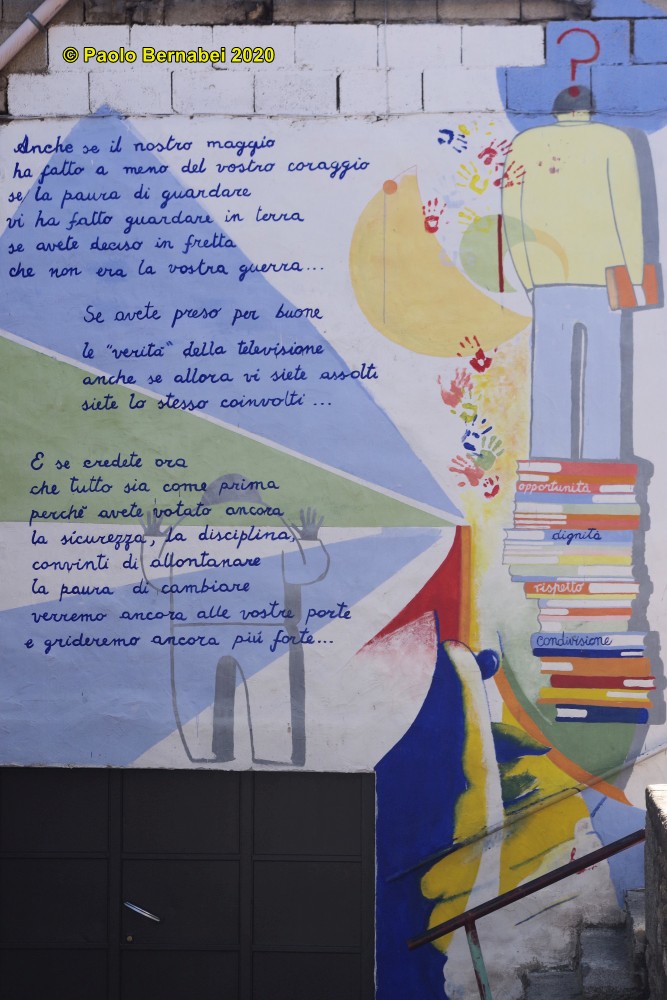 © Paolo Bernabei 2020
?
Anche se il nostro maggio
ha fatto a meno del vostro coraggio
se la paura di guardare
vi ha fatto guardare in terra
se avete deciso in fretta
che non era la vostra guerra...
Se avete preso per buone
le "verità" della televisione
anche se allora vi siete assolti
siete lo stesso coinvolti ...
E se credete ora
che tutto sia come prima
perchè avete votato ancora
la sicurezza, la disciplina,
convinti di allontanare
la paura di cambiare
verremo ancora alle vostre porte
e grideremo ancora piú forte...
opportunità
dignità
rispetto
condivisione